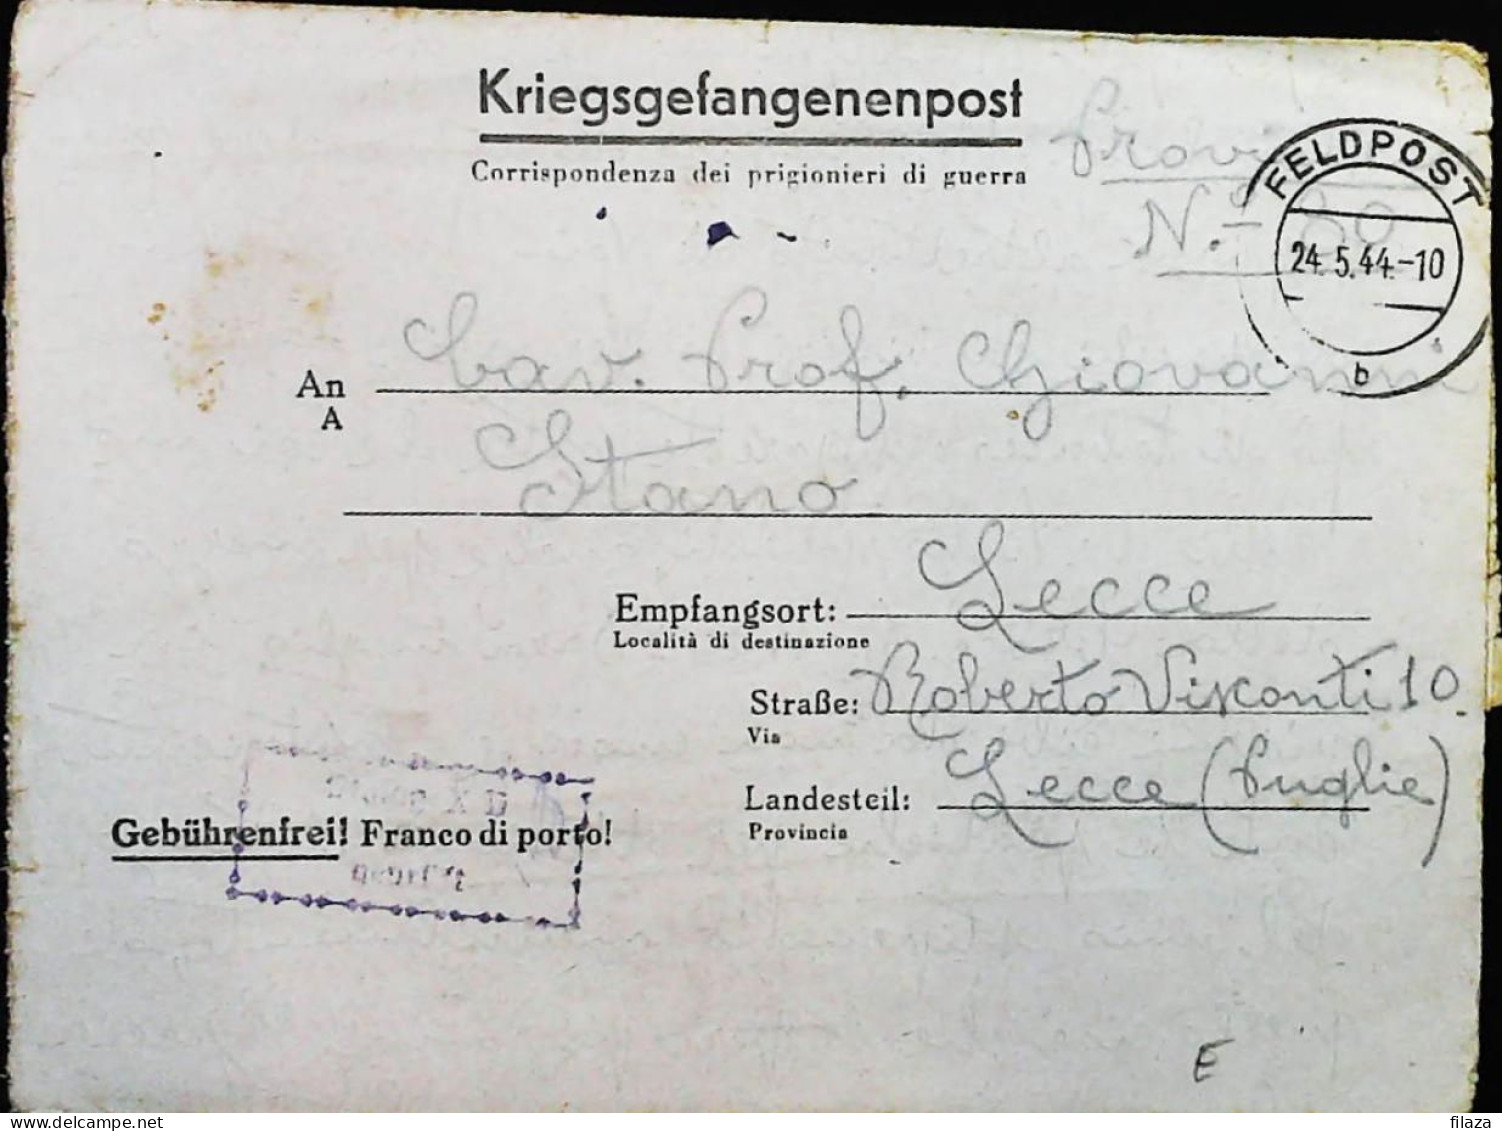 Kriegsgefangenenpost
Corrispondenza dei prigionieri di guerra
N.° 80
FELDPOST
24.5.44.-10
b
An Cav. Prof. Giovanni
A
Stano
Empfangsort: Lecce
Località di destinazione
Straße: Roberto Visconti 10
Via
Landesteil: Lecce (Puglie)
Provincia
Gebührenfrei! Franco di porto!
E
delcampe.net
filaza